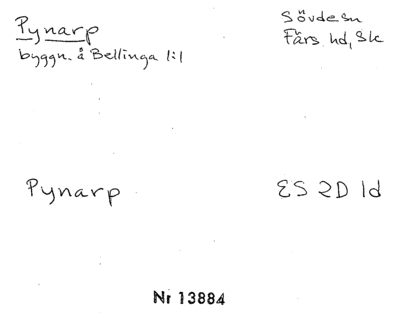 Pynarp
byggn. å Bellinga 1:1
Sövde sn
Färs hd, Sk
Pynarp
ES 2D 1d
Nr 13884